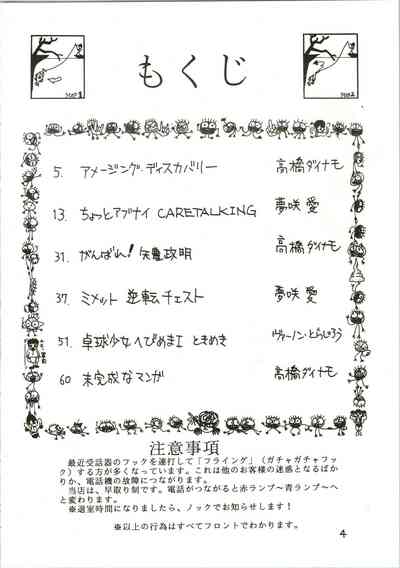 もくじ
STEP 1
STEP 2
5. アメージング・ディスカバリー 高橋ダイナモ
13. ちょっとアブナイ CARETALKING 夢咲 愛
31. がんばれ! 矢亀政明 高橋ダイナモ
37. ミメット 逆転チェスト 夢咲 愛
51. 卓球少女へびめまI ときめき ヴァーノン・とらじろう
60 未完成なマンガ 高橋ダイナモ
注意事項
最近受話器のフックを連打して「フライング」(ガチャガチャフッ
ク)する方が多くなっています。これは他のお客様の迷惑となるばか
りか、電話機の故障につながります。
当店は、早取り制です。電話がつながると赤ランプ~青ランプ~へ
と変わります。
※退室時間になりましたら、ノックでお知らせします!
※以上の行為はすべてフロントでわかります。
4